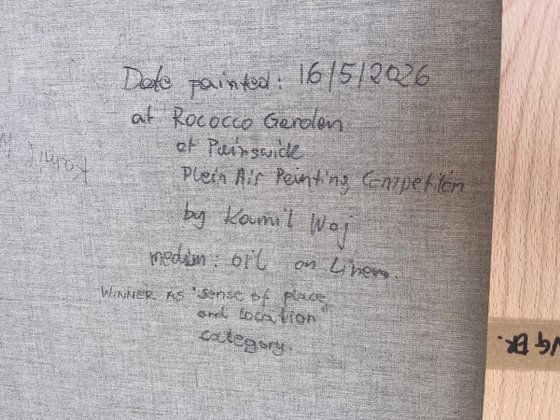 Date painted: 16/5/2026
at Rococco Garden
at Painswick
Plein Air Painting Competiton
by Kamil Woj
medium: oil on Linen.
WINNER AS 'sense of place,
and location
category.
Kamil W
ER.